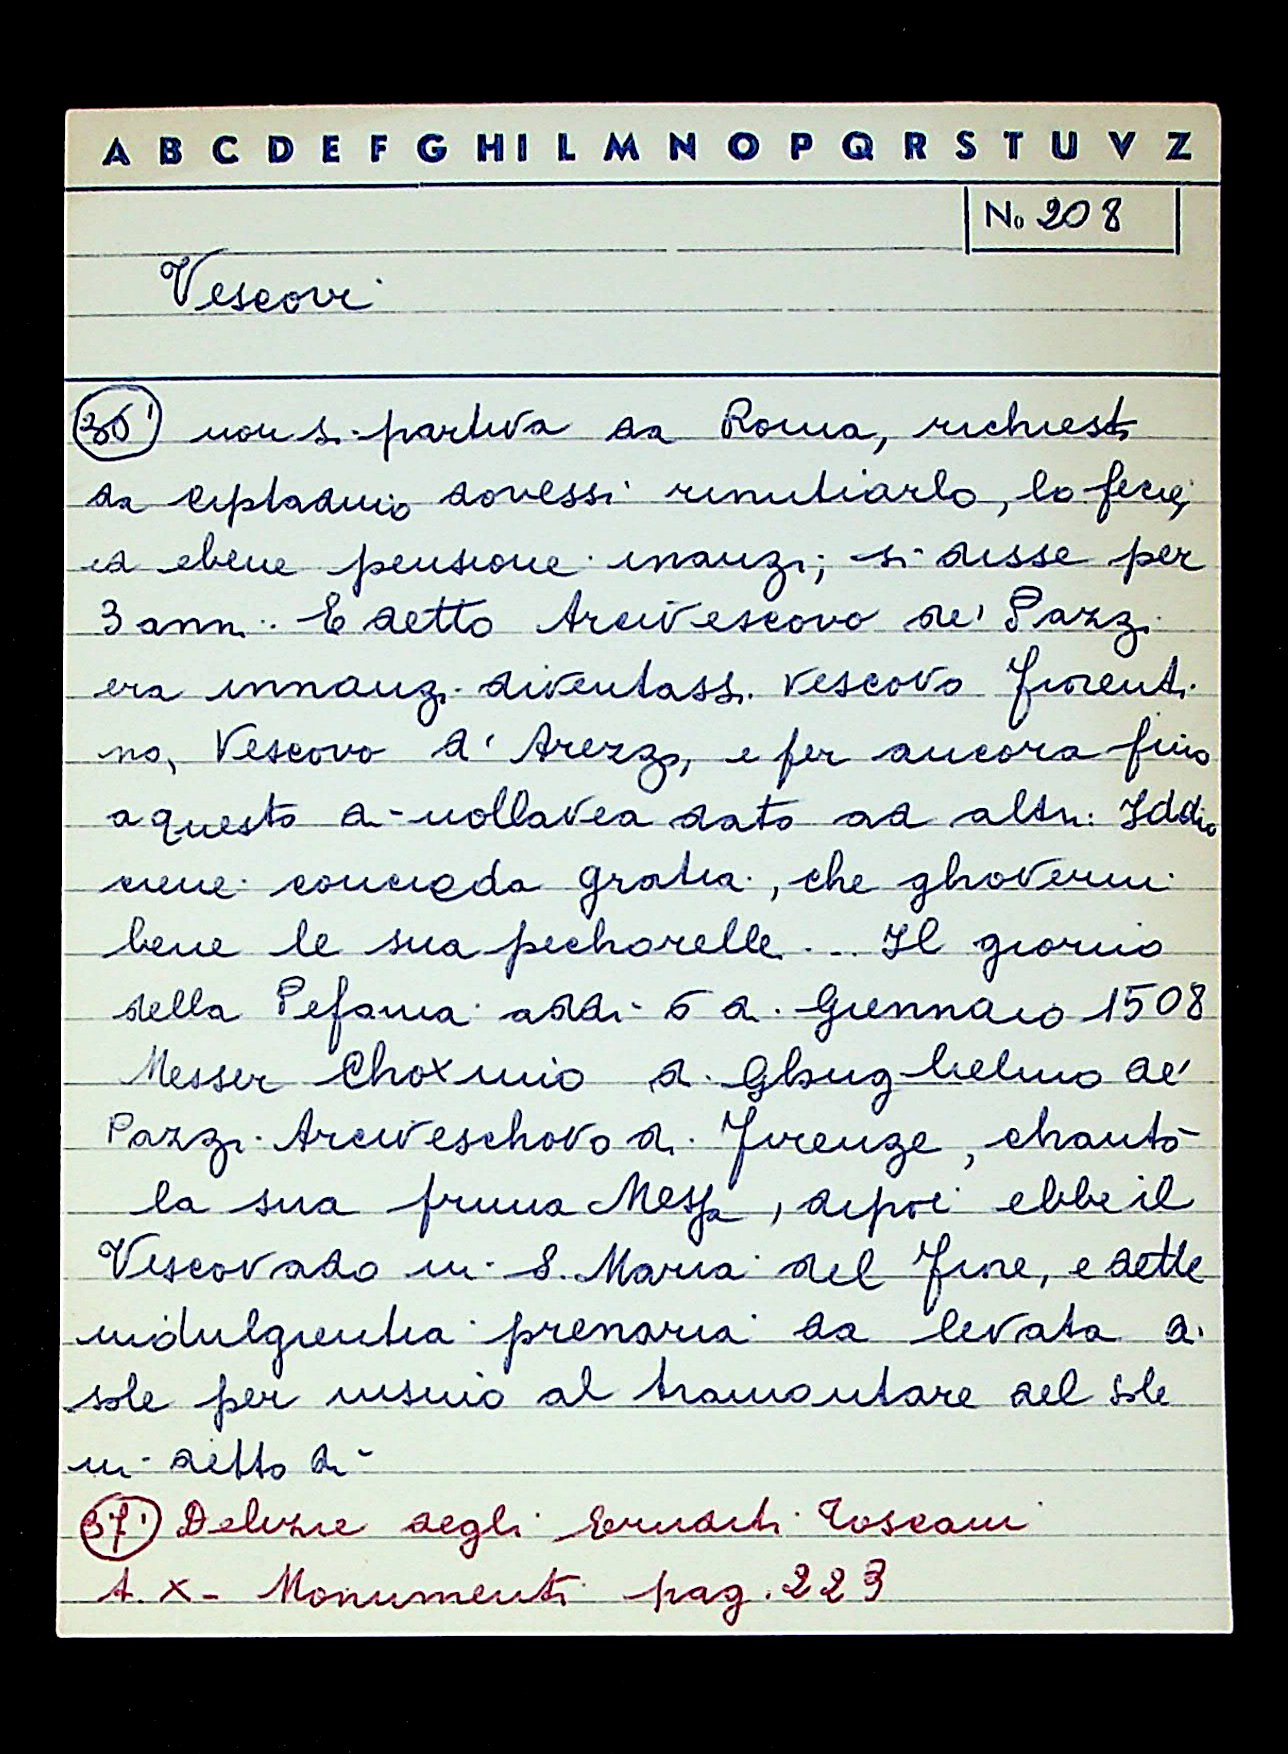 A B C D E F G H I L M N O P Q R S T U V Z
No 208
Vescovi
36' non si partiva da Roma, richiesto
da dovessi rinutiarlo, lo fecie,
ed ebene pensione inanzi; si disse per
3 anni. E detto Arcivescovo de' Pazzi
era innanzi diventassi vescovo Fiorenti
no, Vescovo d' Arezzo, e per ancora fino
a questo dì nollavea dato ad altri: Iddio
ciene conceda gratia, che ghoverni
bene le sua pechorelle ... Il giorno
della Pefania addi 6 di Giennaio 1508
Messer Choximo di Ghuglielmo de'
Pazzi Arciveschovo di Firenze, chantò
la sua prima Messa, dipoi ebbe il
Vescovado in S. Maria del Fiore, e dette
indulgientia prenaria da levata di
sole per insino al tramontare del sole
in detto dì
37' Delizie degli Eruditi Toscani
t. X - Monumenti pag. 223